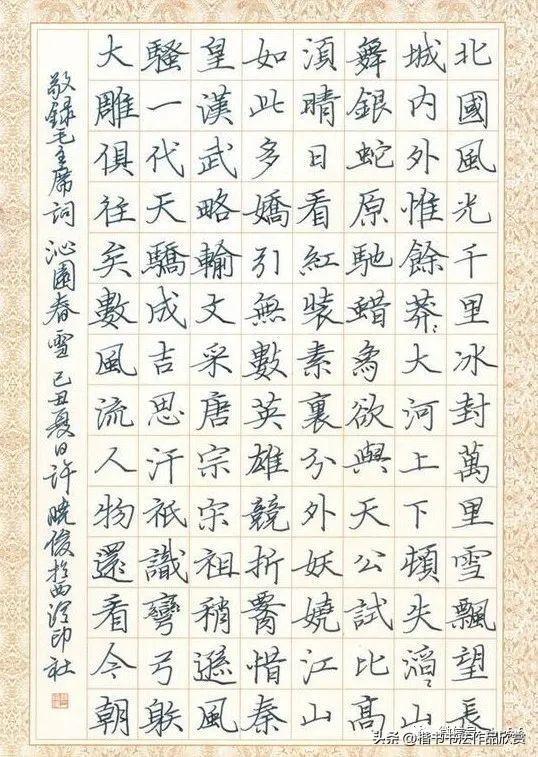 北國風光千里冰封萬里雪飄望長
城内外惟餘莽〻大河上下頓失滔〻山
舞銀蛇原馳蜡象欲與天公試比高
須晴日看紅裝素裹分外妖嬈江山
如此多嬌引無數英雄競折腰惜秦
皇漢武略輸文采唐宗宋祖稍遜風
騷一代天驕成吉思汗祇識彎弓射
大雕俱往矣數風流人物還看今朝
敬録毛主席詞 沁園春雪 己丑夏日許曉俊於西泠印社
头条@楷书书法作品欣赏